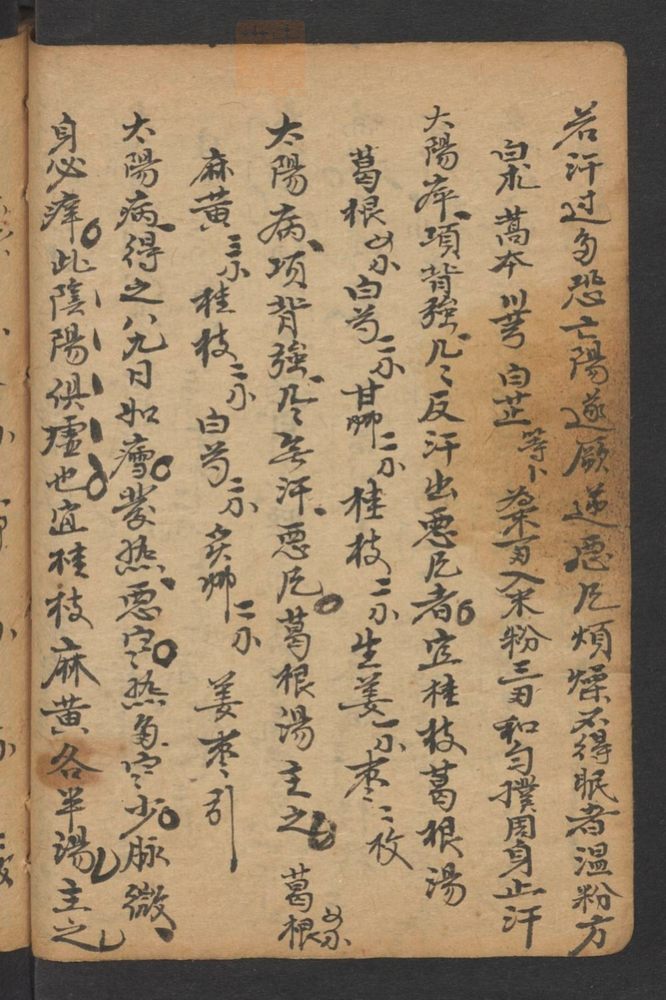 若汗过多恐亡陽遂厥逆惡尼煩燥不得眠者温粉方
白朮 藁本 川芎 白芷 等卜 為末 入米粉三 和勻撲周身止汗
太陽病項背強几〻反汗出惡尼者宜桂枝葛根湯
葛根 白芍二小 甘 二小 桂枝二小 生姜一小 枣二枚
太陽病項背強几〻無汗惡尼葛根湯主之 葛根
麻黄三小 桂枝二小 白芍二小 炙 二小 姜枣引
太陽病得之八九日如瘧發热惡寒热多寒少脉微
身必痒此陰陽俱虛也宜桂枝麻黄各半湯主之